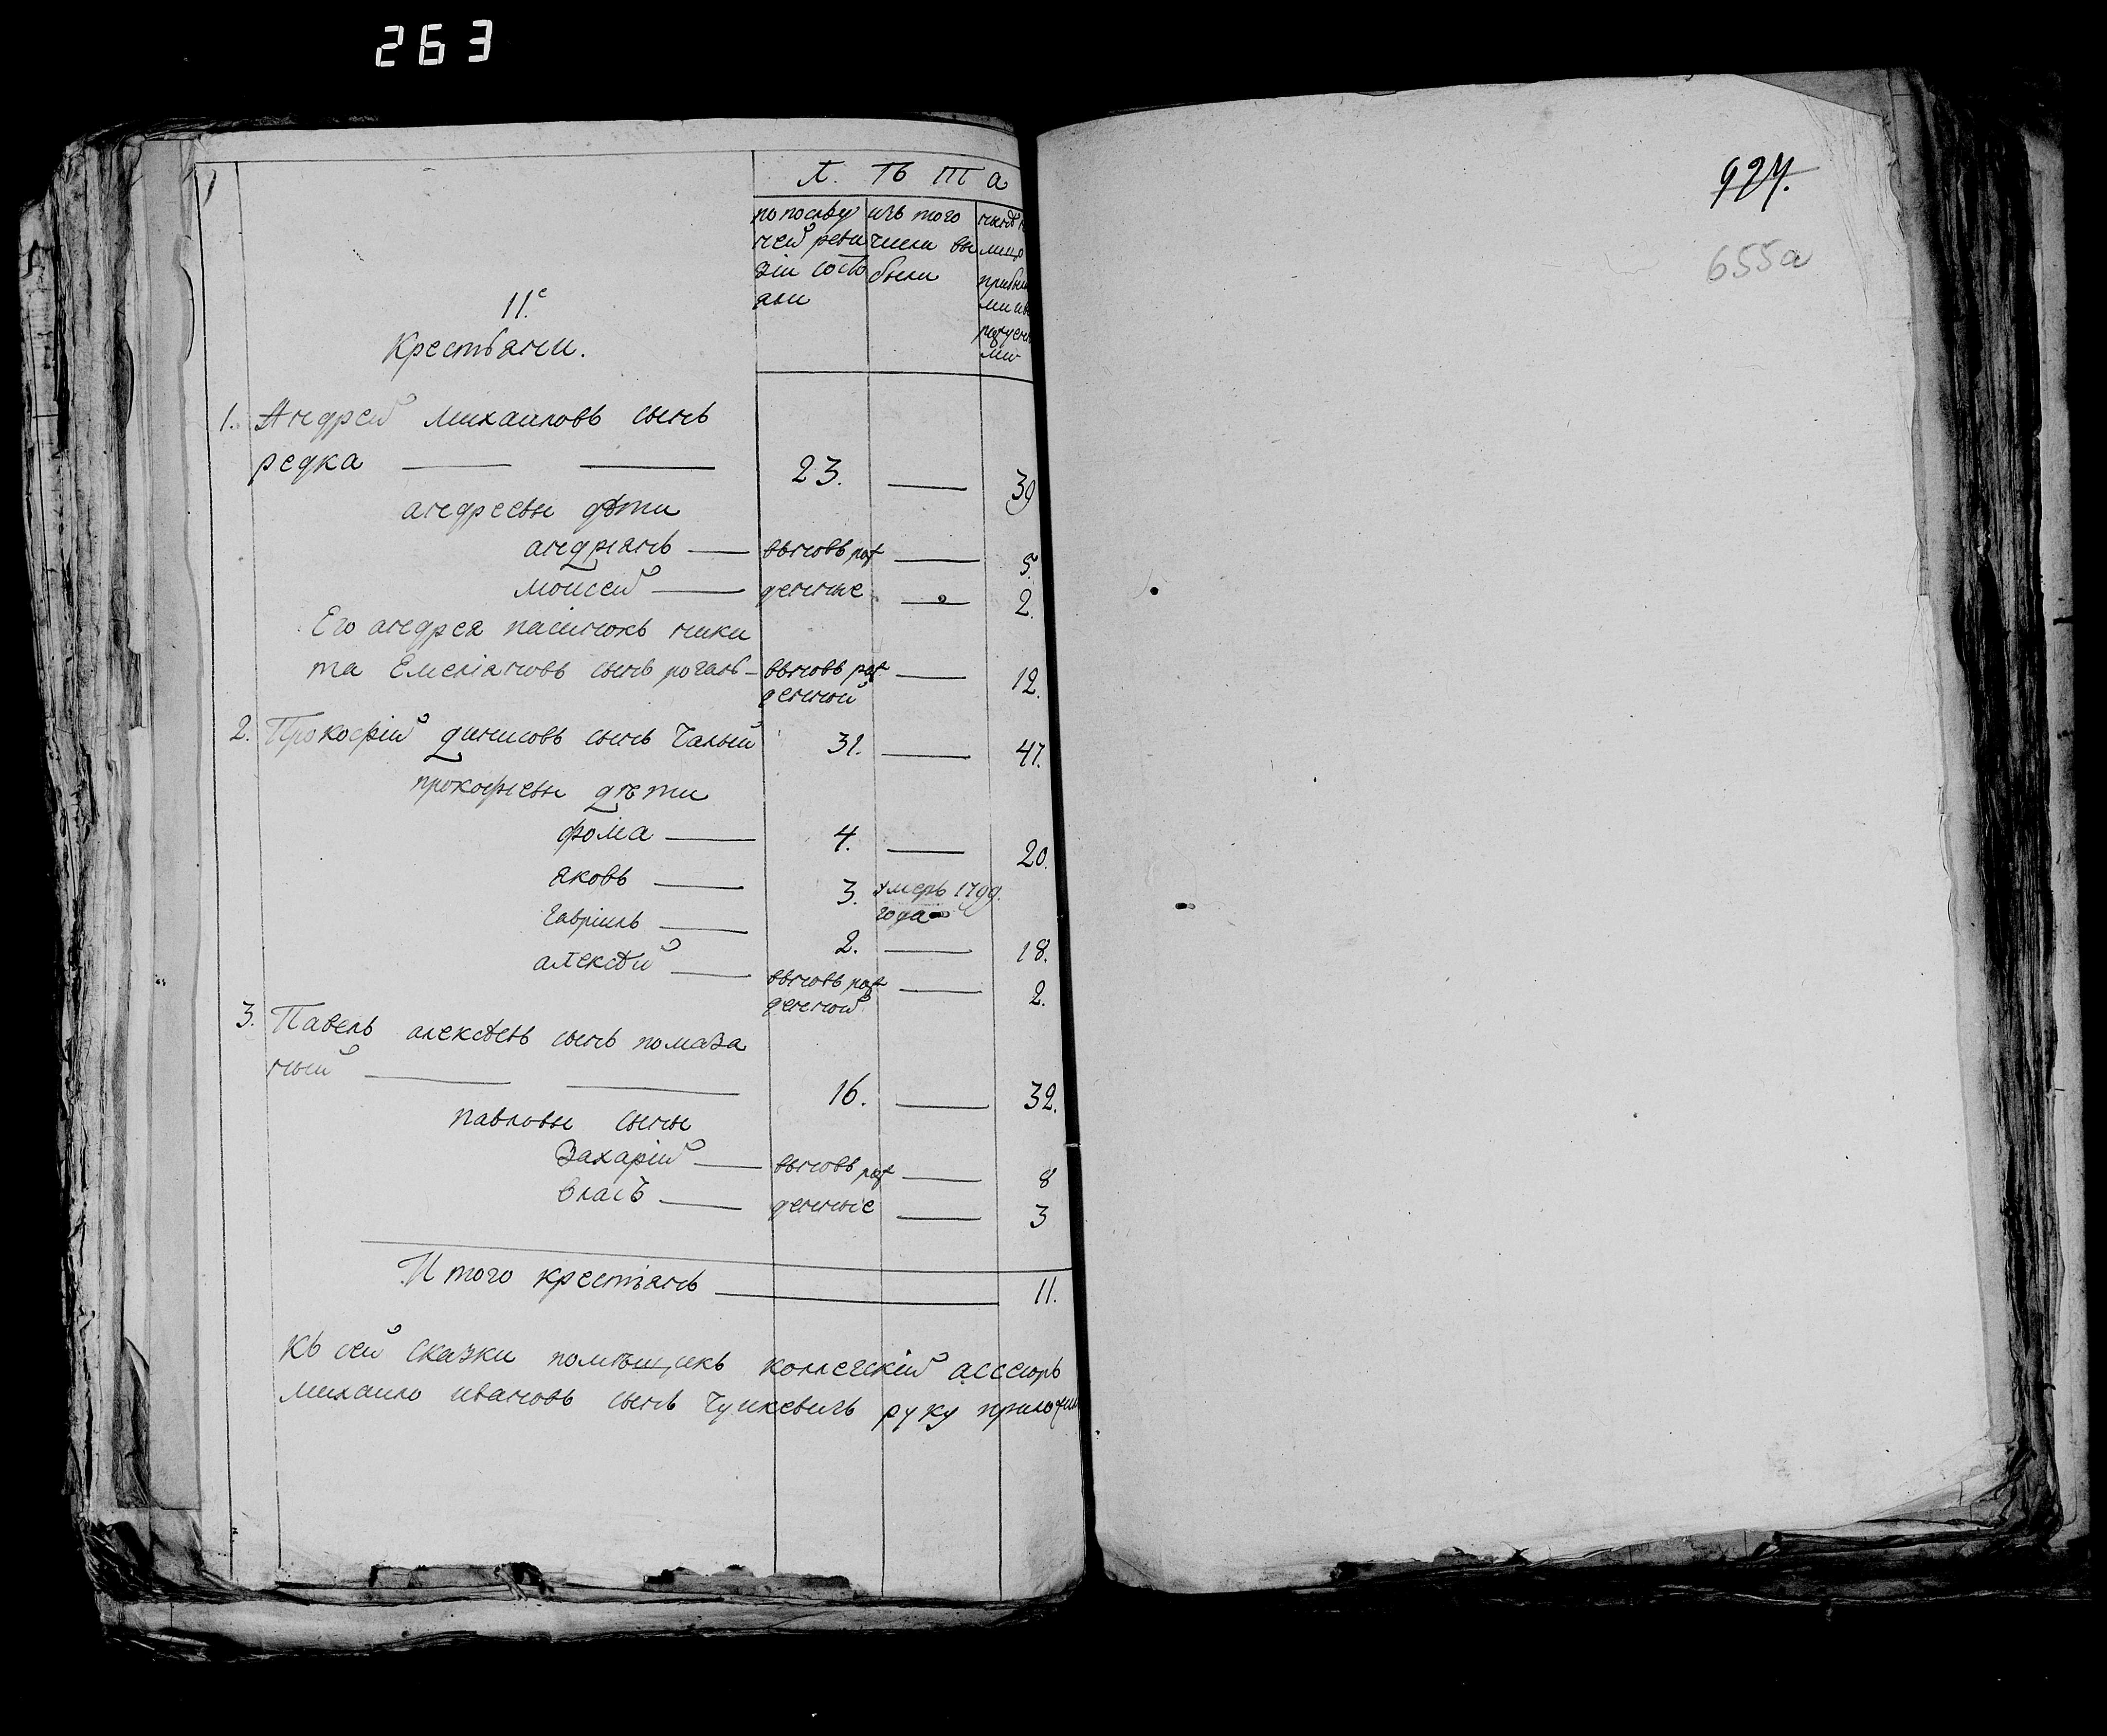 263
Л. Ѣ Т а
по послѣд
ней реви
зіи состо
яли
изъ того
числа вы
были
нынѣ
лицо
прибы
ми
ми
11е
Крестьяни.
1. Андрей михаиловъ сынъ
редка 23. 39
андреевы дѣти
андріянъ вновь рож 5.
моисей денные 2.
Его андрея пасинокъ ники
та Емеліяновъ сынъ рогаль вновь рож 12.
денный
2. Прокофій динисовъ сынъ Чалый 31. 47.
прокофіевы дѣти
фома 4. 20.
яковъ 3. умеръ 1799.
года
гавріилъ 2. 18.
алексѣй вновь рож 2.
денный
3. Павелъ алексѣевъ сынъ помаза
ный 16. 32.
павловы сыны
Захарій вновь рож 8
власъ денные 3
Итого крестіянъ 11.
Къ сей сказки помѣщикъ колегскій ассесоръ
михаило ивановъ сынъ Чуйкевичъ руку приложил
927.
655а